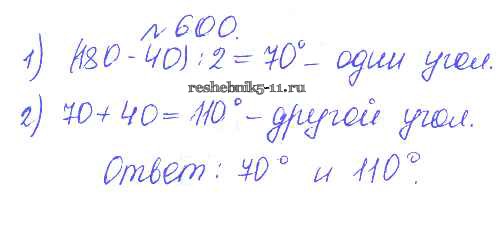 № 600.
1) (180 - 40) : 2 = 70° - один угол.
reshebnik5-11.ru
2) 70 + 40 = 110° - другой угол.
Ответ: 70° и 110°.